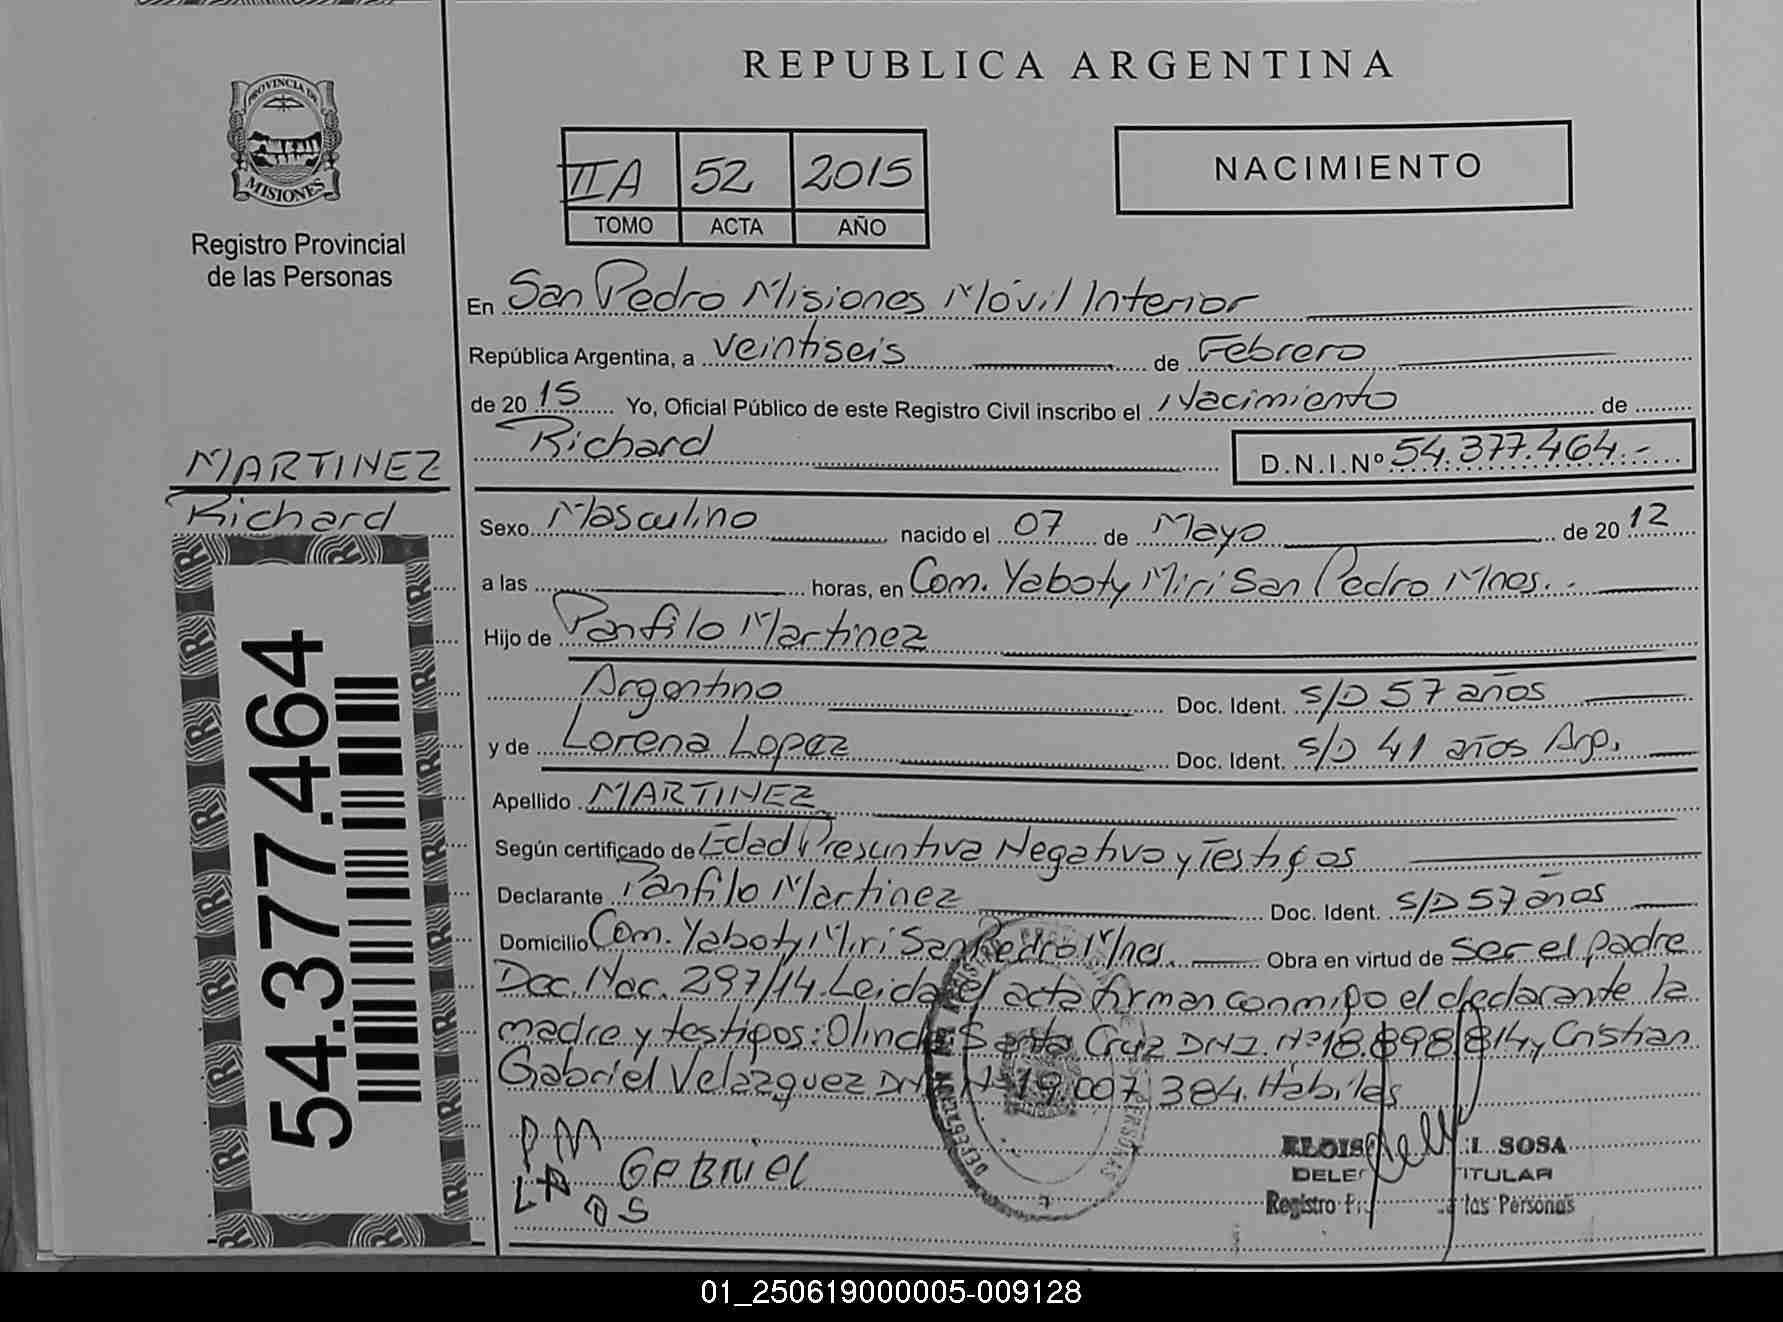 REPUBLICA ARGENTINA
PROVINCIA DE
MISIONES
Registro Provincial
de las Personas
IIA 52 2015
TOMO ACTA AÑO
NACIMIENTO
En San Pedro Misiones Móvil Interior
República Argentina, a veintiseis de Febrero
de 2015 Yo, Oficial Público de este Registro Civil inscribo el Nacimiento de
Richard D.N.I.Nº 54.377.464.-
MARTINEZ
Richard
54.377.464
Sexo Masculino nacido el 07 de Mayo de 2012
a las horas, en Com. Yaboty Miri San Pedro Mnes.-
Hijo de Panfilo Martinez
Argentino Doc. Ident. S/D 57 años
y de Lorena Lopez Doc. Ident. S/D 41 años Arg.
Apellido MARTINEZ
Según certificado de Edad Presuntiva Negativo y Testigos
Declarante Panfilo Martinez Doc. Ident. S/D 57 años
Domicilio Com. Yaboty Miri San Pedro Mnes. Obra en virtud de ser el padre
Doc. Nac. 297/14. Leida el acta firman conmigo el declarante la
madre y testigos: Olinda Santa Cruz DNI. Nº 18.898.814 y Cristian
Gabriel Velazquez DNI Nº 19.007.384. Hábiles
PM
LA GABRIEL
OS
SOSA
TITULAR
Registro las Personas
01_250619000005-009128